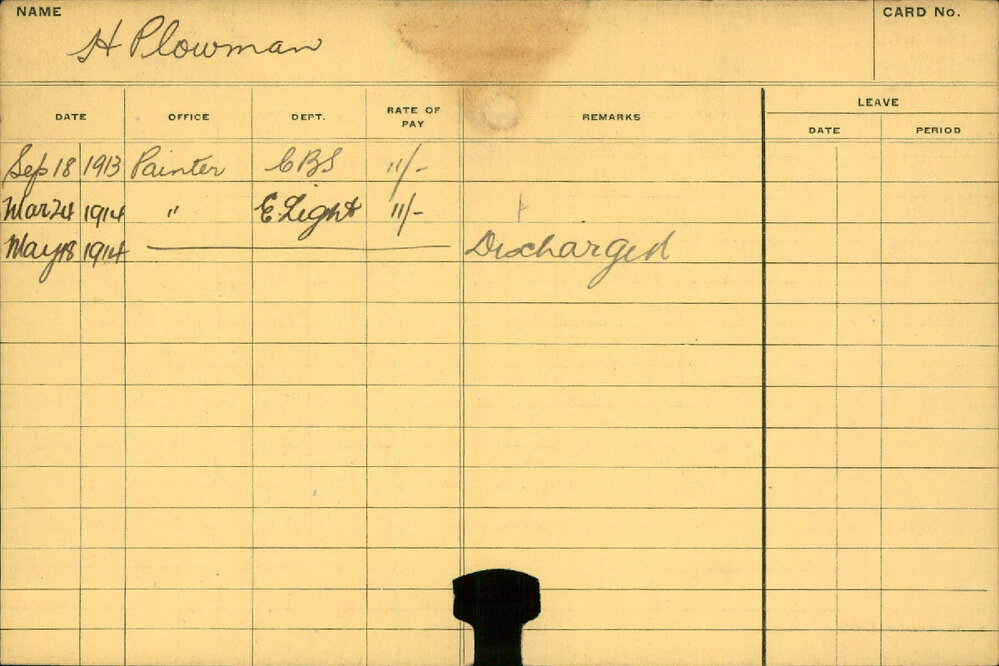 NAME CARD No.
H Plowman
LEAVE
DATE OFFICE DEPT. RATE OF PAY REMARKS DATE PERIOD
Sep 18 1913 Painter CBS 11/-
Mar 24 1914 " E Light 11/-
May 18 1914 Discharged